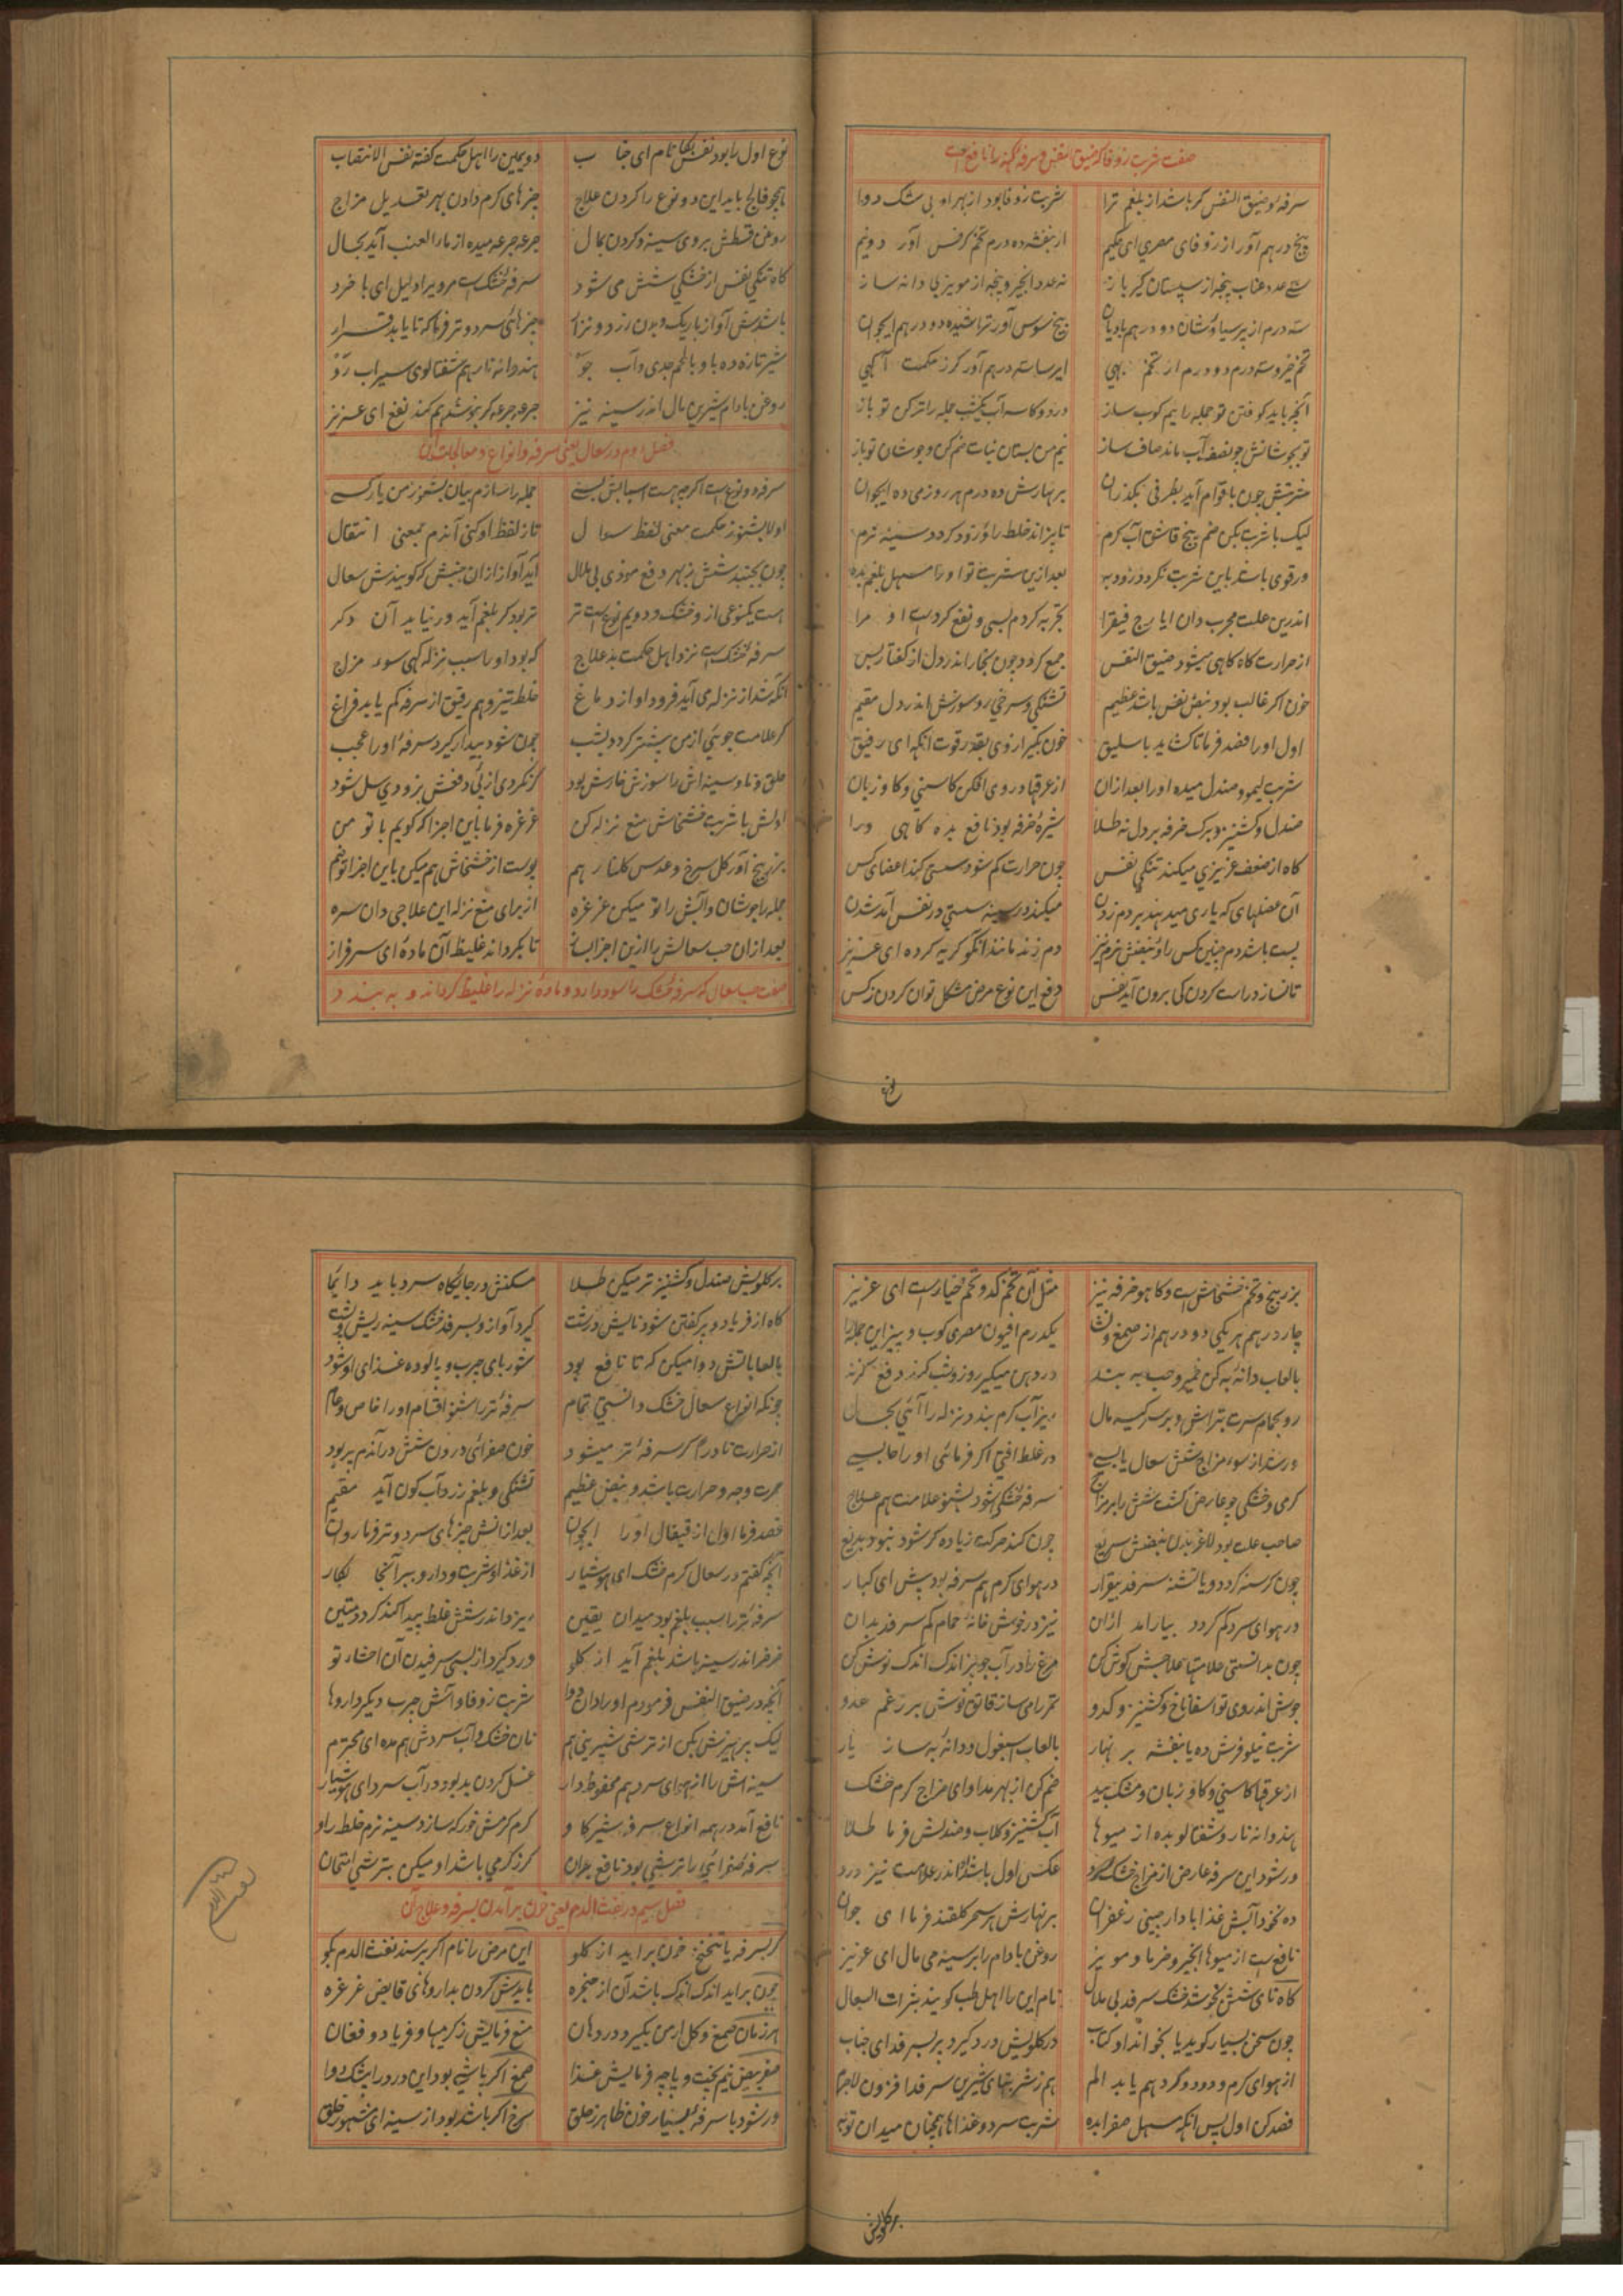 صفت شربت زوفا که ضیق النفس و سرفه کهنه را نافع است
سرفه و ضیق النفس کر باشد از بلغم ترا شربت زوفا بود از بهر او بی شک دوا
پنج درهم آور از زوفای مصری ای حکیم از بنفشه ده درم تخم کرفس آور دونیم
سی عدد عناب پنجه از سپستان کیر باز نه عدد انجیر و پنجه از مویز بی دانه ساز
سه درم از پرسیاوشان دو درهم بادیان بیخ سوس آور تراشیده دو درهم ایجوان
تخم خیرو سه درم دو درم از تخم بهی ایرسا سه درهم آور کر ز حکمت آکهی
آنچه باید کوفتن تو جمله را نیم کوب ساز در دو کاسه آب یکشب جمله را تر کن تو باز
تو بجوشانش چو نصف آب ماند صاف ساز نیم من بستان نبات ضم کن و جوشان تو باز
شربتش چون با قوام آید بظرفی بکذران بر نهارش ده درم هر روز می ده ایجوان
لیک با شربت بکن ضم پنج قاشق آب کرم تا پزاند خلط را و زود کردد سینه نرم
ور قوی باشد باین شربت نکردد زود به بعد ازین شربت تو او را مسهل بلغم بده
اندرین علت مجرب دان ایارج فیقرا تجربه کردم بسی و نفع کردست او مرا
از حرارت کاه کاهی میشود ضیق النفس جمع کردد چون بخار اندر دل از کفتار بس
خون اکر غالب بود نبض نفس باشد عظیم تشنکی و سرخی رو سوزش اندر دل مقیم
اول او را فصد فرما تا کشاید باسلیق خون بکیر از وی بقدر قوت آنکه ای رفیق
شربت لیمو و صندل میده او را بعد ازان از عرقها در وی افکن کاسنی و کاو زبان
صندل و کشنیز و برک خرفه بر دل نه طلا شیره خرفه بود نافع بده کاهی ورا
کاه از ضعف غریزی میکند تنکی نفس چون حرارت کم شود سستی کند اعضای کس
آن عضلهای که یاری میدهند بر دم زدن میکند در سینه سستی در نفس آمد شدن
پست باشد دم چنین کس را و نبضش نرم نیز دم زند مانند آنکو کریه کرده ای عزیز
تا نسازد راست کردن کی برون آید نفس دفع این نوع مرض مشکل توان کردن ز کس
نوع
نوع اول را بود نفس بکا نام ای جناب دویمین را اهل حکمت کفته نفس الانتصاب
همچو فالج باید این دو نوع را کردن علاج چیزهای کرم دادن بهر تعدیل مزاج
روغن قسطش بروی سینه و کردن بمال جرعه جرعه میده از ماء العنب آید بحال
کاه تنکی نفس از خشکی شش می شود سرفه خشکست مرو را دلیل ای با خرد
باشدش آواز باریک و بدن زرد و نزار چیزهای سرد و تر فرما که تا یابد قرار
شیر تازه ده باو با لحم جدی و آب جو هندوانه نار هم شفتالوی سیراب رو
روغن بادام شیرین مال اندر سینه نیز جرعه جرعه کر بنوشد هم کند نفع ای عزیز
فصل دوم در سعال یعنی سرفه و انواع و معالجات آن
سرفه دو نوع است اکرچه هست اسبابش بسی جمله را سازم بیان بشنو ز من یار کسی
اولا بشنو ز حکمت معنی لفظ سعال تا ز لفظ او کنی آندم بمعنی انتقال
چون بجنبد شش ز بهر دفع موذی بی ملال آید آواز از آن جنبش که کویندش سعال
هست یکنوعی از و خشک و دویم نوع است تر تر بود کر بلغم آید ور نیاید آن دکر
سرفه خشکست نزد اهل حکمت بد علاج که بود او را سبب نزله کهی سوء مزاج
آنکه شد از نزله می آید فرود او از دماغ خلط تیز و هم رقیق از سرفه کم یابد فراغ
کر علامت جوئی از من بیشتر کردد بشب چون شود بیدار کیرد سرفه او را عجب
حلق و نا و سینه اش را سوزش خارش بود کر نکردی از پی دفعش بزودی سل شود
اولش با شربت خشخاش منع نزله کن غرغره فرما باین اجزا که کویم با تو من
بزر بنج آور کل سرخ و عدس کلنار هم پوست از خشخاش هم میکن باین اجزا تو ضم
جمله را جوشان و آبش را تو میکن غرغره از برای منع نزله این علاجی دان سره
بعد ازان حب سعالش را ازین اجزا بساز تا بکرداند غلیظ آن ماده ای سرفراز
صفت حب سعال که سرفه خشک را سود دارد و ماده نزله را غلیظ کرداند و به بندد
بزر بنج و تخم خشخاش است و کاهو خرفه نیز مثل آن تخم کدو تخم خیارست ای عزیز
چار درهم هر یکی دو درهم از صمغ و نشا یکدرم افیون مصری کوب و بیز این جمله را
با لعاب دانه به کن خمیر و حب به بند در دهن میکیر روز و شب کند دفع کزند
رو بحمام سرت بتراش و بر سر کیسه مال ریز آب کرم بندد نزله را آئی بحال
ور شد از سوء مزاج شش سعال یابسی در غلط افتی اکر فرمائی او را حابسی
کرمی و خشکی چو عارض کشت شش را بر مزاج سرفه خشکی شود بشنو علامت هم علاج
صاحب علت بود لاغر بدن نبضش سریع چون کند حرکت زیاده کر شود نبود بدیع
چون کرسنه کردد و یا تشنه سرفد بیقرار در هوای کرم هم سرفه بود بیش ای کبار
در هوای سرد کم کردد بیارامد ازان نیز در خوش خانهٔ حمام کم سرفد بدان
چون بدانستی علامتها علاجش کوش کن مرغ را در آب جو پز اندک اندک نوش کن
جوش اندر وی تو اسفاناخ و کشنیز و کدو تمر را می ساز قاتق نوش بر رغم عدو
شربت نیلوفرش ده یا بنفشه بر نهار با لعاب اسبغول و دانه به ساز یار
از عرقها کاسنی و کاو زبان و مشک بید ضم کن از بهر مداوای مزاج کرم خشک
هندوانه نار و شفتالو بده از میوها آب کشنیز و کلاب و صندلش فرما طلا
ور شود این سرفه عارض از مزاج خشک و سرد عکس اول باشد اندر علامت نیز درد
ده نخود آبش غذا با دارچینی زعفران بر نهارش هر سحر کلقند فرما ای جوان
نافع است از میوها انجیر و خرما و مویز روغن بادام را بر سینه می مال ای عزیز
کاه نای شش بخوشد خشک سرفد بی ملال نام این را اهل طب کویند بثرات السعال
چون سخن بسیار کوید یا بخواند او کتاب در کلویش درد کیرد بر بسرفد ای جناب
از هوای کرم و دود و کرد هم یابد الم هم ز شربتهای شیرین سرفد افزون لاجرم
فصد کن اول پس آنکه مسهل صفرا بده شربت سرد و غذاها همچنان میدان تو به
بر کلویش
بر کلویش صندل و کشنیز تر میکن طلا مسکنش در جایکاه سرد باید دائما
کاه از فریاد و پر کفتن شود نایش درشت کیرد آواز و بسرفد خشک سینه ریش و پشت
با لعاباتش دوا میکن که تا نافع بود شوربای چرب و پالوده غذای او شود
چونکه انواع سعال خشک دانستی تمام سرفهٔ تر را شنو اقسام او را خاص و عام
از حرارت نادرا کر سرفهٔ تر میشود خون صفرائی درون شش در آندم پر بود
حمرت وجه و حرارت باشد و نبض عظیم تشنکی و بلغم زرد آب کون آید مقیم
فصد فرما اول از قیفال او را ایجوان بعد ازانش چیزهای سرد و تر فرما روان
آنچه کفتم در سعال کرم خشک ای هوشیار از غذا و شربت و دارو ببر آنجا بکار
سرفهٔ تر را سبب بلغم بود میدان یقین ریزد اندر شش غلط پیدا کند کردد متین
خرخر اندر سینه باشد بلغم آید از کلو درد کیرد از بسی سرفیدن آن احشاء تو
آنچه در ضیق النفس فرمودم او را دان دوا شربت زوفا و آش چرب دیکر داروها
لیک پرهیزش بکن از ترشی شیرینی هم نان خشک و آب سردش هم مده ای محترم
سینه اش را از هوای سرد هم محفوظ دار غسل کردن بد بود در آب سرد ای هوشیار
نافع آمد در همه انواع سرفه شیر کاو کرم کرمش خور که سازد سینه نرم خلط راو
سرفهٔ صفرائی را ترشی بود نافع بدان کر ز کرمی باشد او میکن بترشی امتحان
فصل سیم در نفث الدم یعنی خون بر آمدن بسرفه و علاج آن
کر بسرفه یا تنخنح خون براید از کلو این مرض را نام اکر پرسند نفث الدم بکو
چون براید اندک اندک باشد آن از حنجره بایدش کردن بداروهای قابض غرغره
هر زمان صمغ و کل ارمن بکیرد در دهان منع فرمایش ز کرمیها و فریاد و فغان
صفر بیض نیم پخت و پاچه فرمایش غذا صمغ اکر باشی بود این درد را بیشک دوا
ور شود با سرفهٔ بسیار خون ظاهر ز حلق سرخ اکر باشد بود از سینه ای مشهور خلق